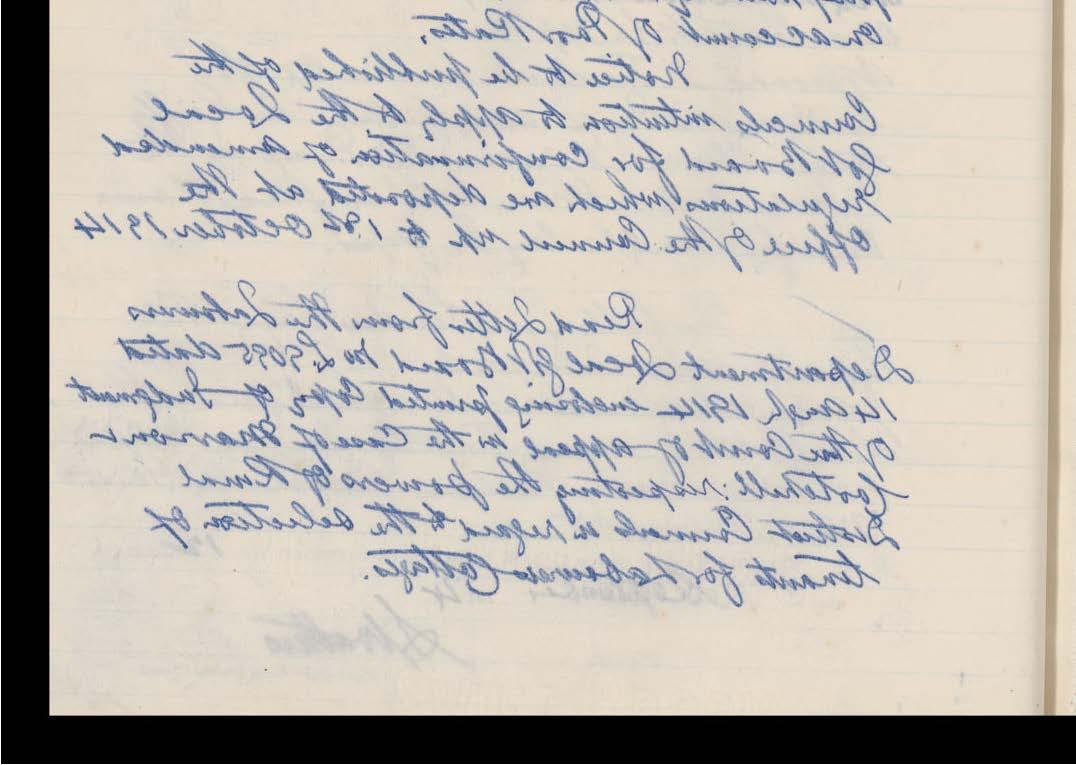 on account of Poor Rate.
Notice to be published of the
Councils intention to apply to the Local
Govt Board for Confirmation of Amended
regulations which are deposited at the
Office of the Council up to 1st October 1914
Read Letter from the Labourers
Department Local Govt Board dated
14 Augt 1914 enclosing printed Copy of Judgment
of the Court of Appeal in the Case of
respecting the powers of Rural
District Councils in regard to the selection of
tenants for Labourers Cottages.